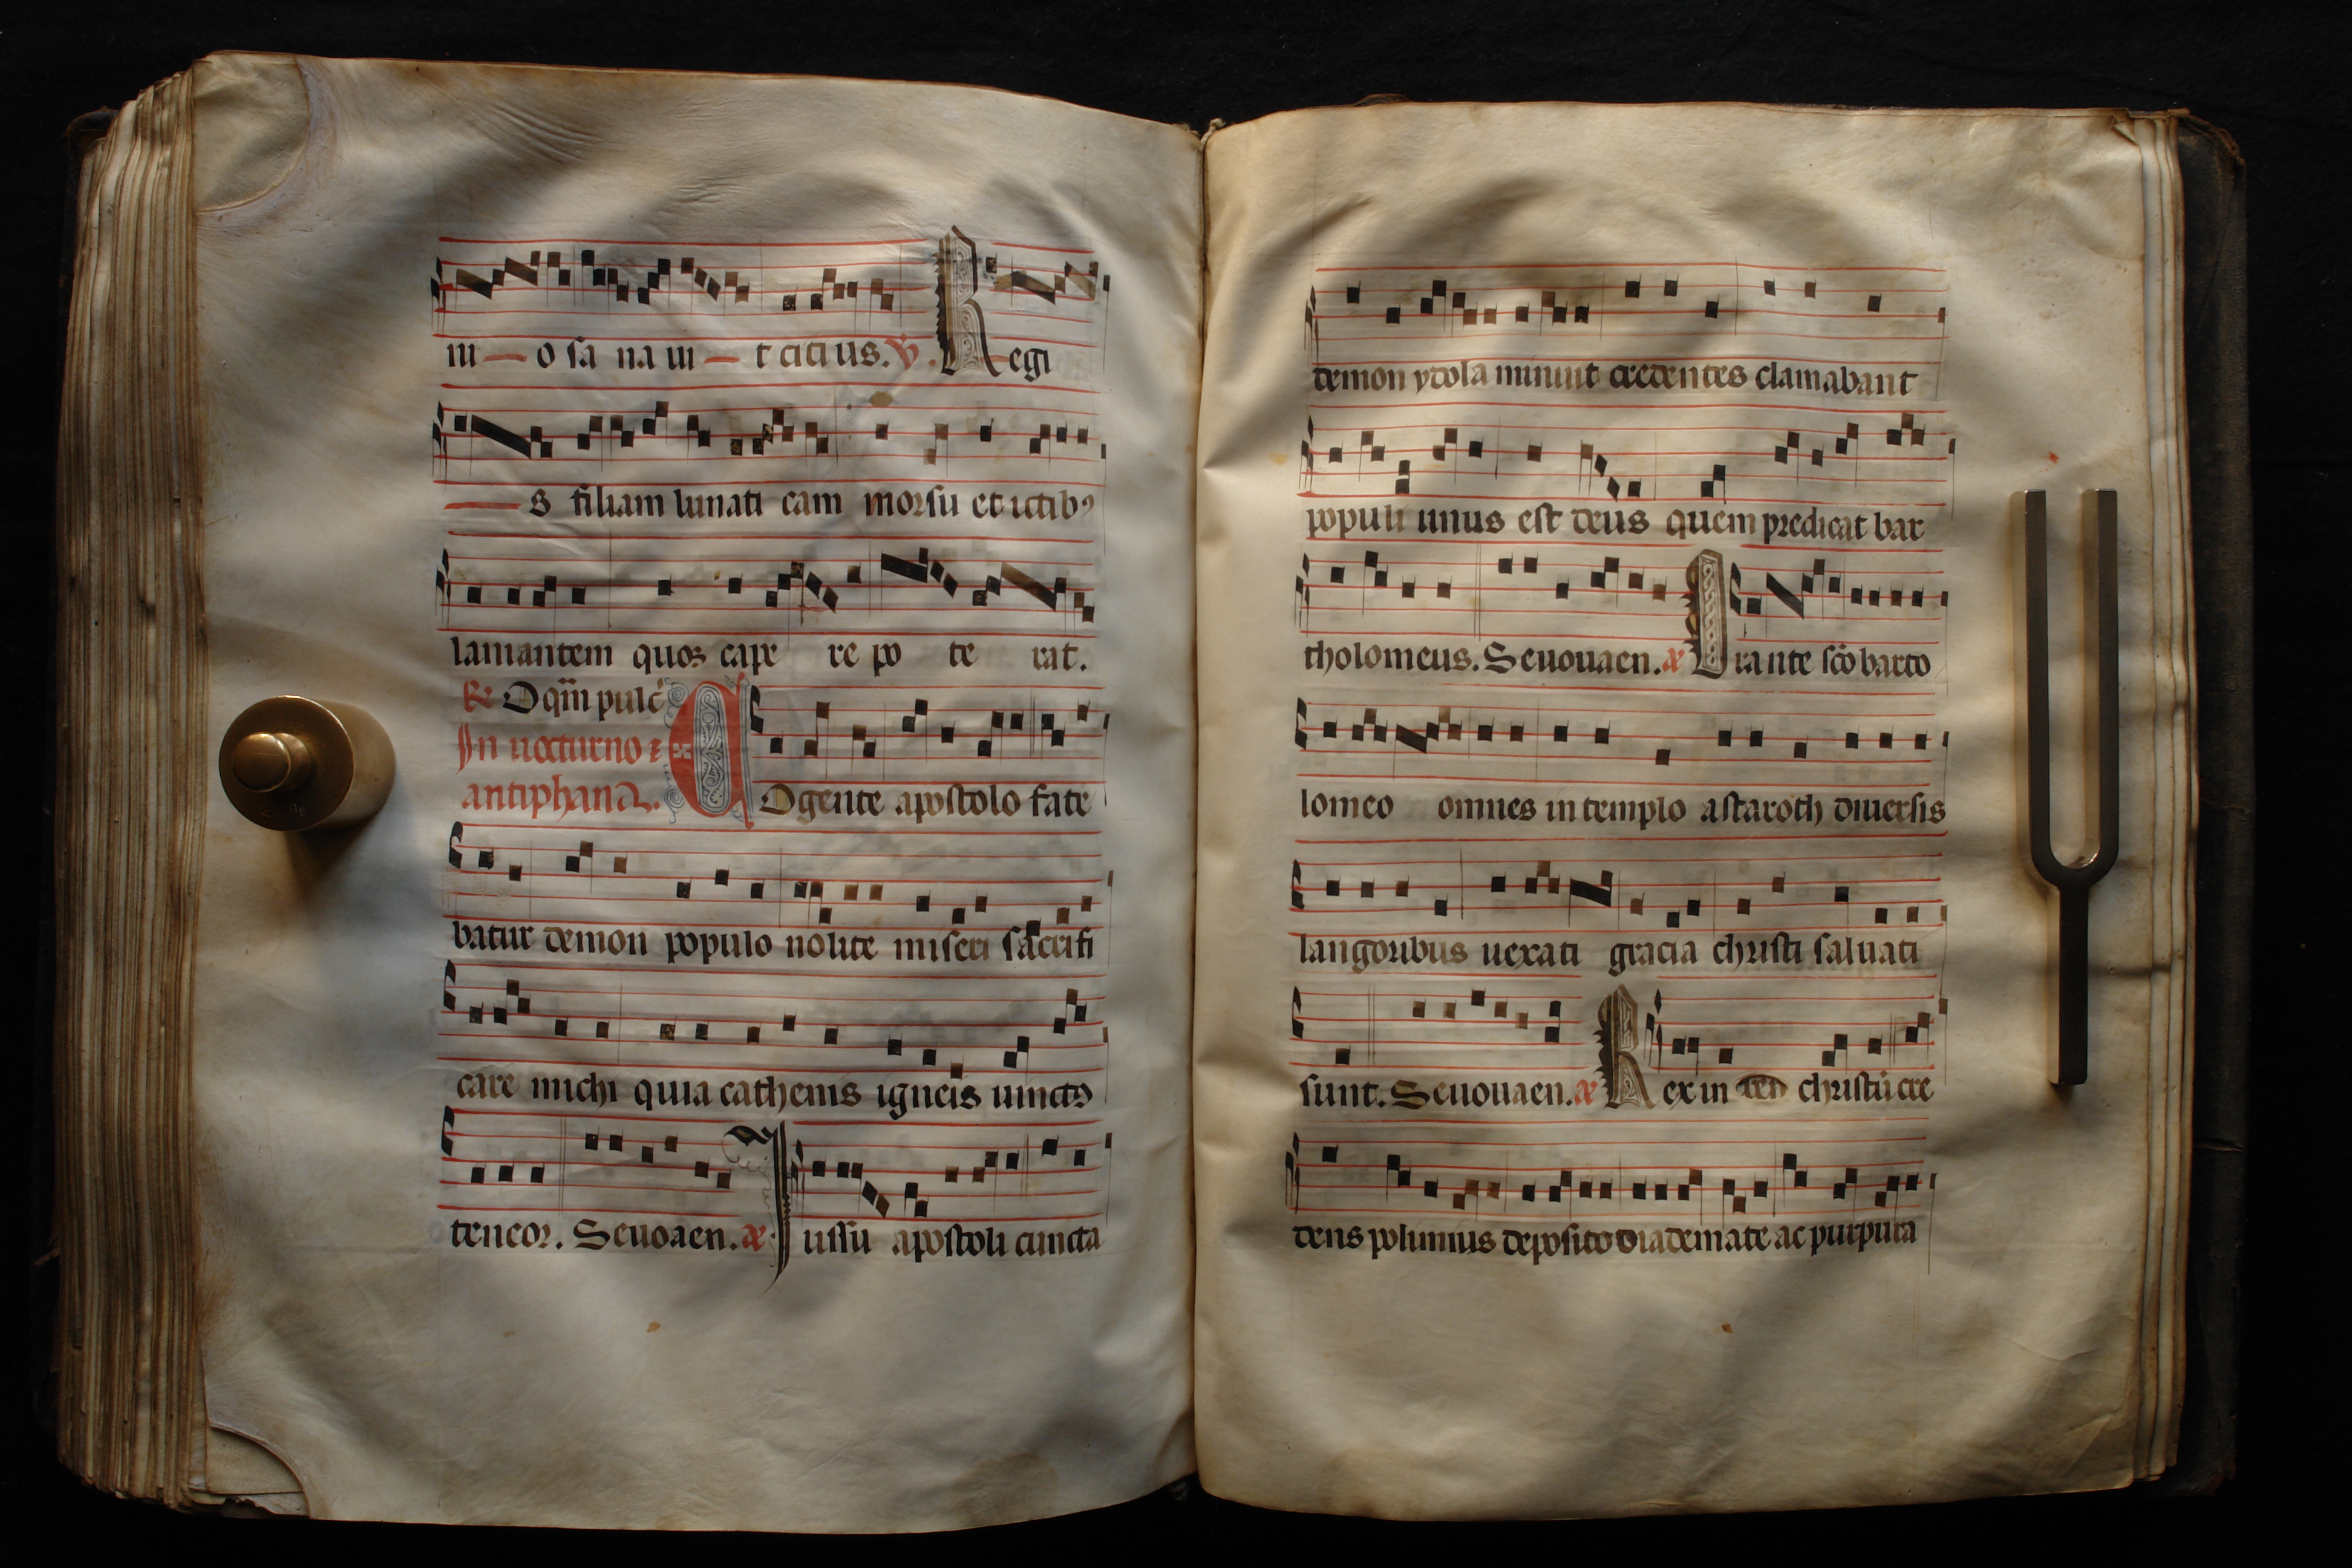 ni — o sa na ui — t citius. ℣. Regi
— s filiam lunati cam morsu et ictibꝰ
lamantem quos cape re po te rat.
℟ O qm̄ pulc̄
In nocturno
antiphana. COgente apostolo fate
batur demon populo nolite miseri sacrifi
care michi quia cathenis igneis uinctꝰ
teneor. Seuoaen. æ Iussu apostoli cuncta
demon ydola minuit credentes clamabant
populi unus est deus quem predicat bar
tholomeus. Seuouaen. æ Orante sc̄o barto
lomeo omnes in templo astaroth diuersis
langoribus uexati gracia christi saluati
sunt. Seuouaen. æ Rex in christū cre
dens polimius deposito diademate ac purpura